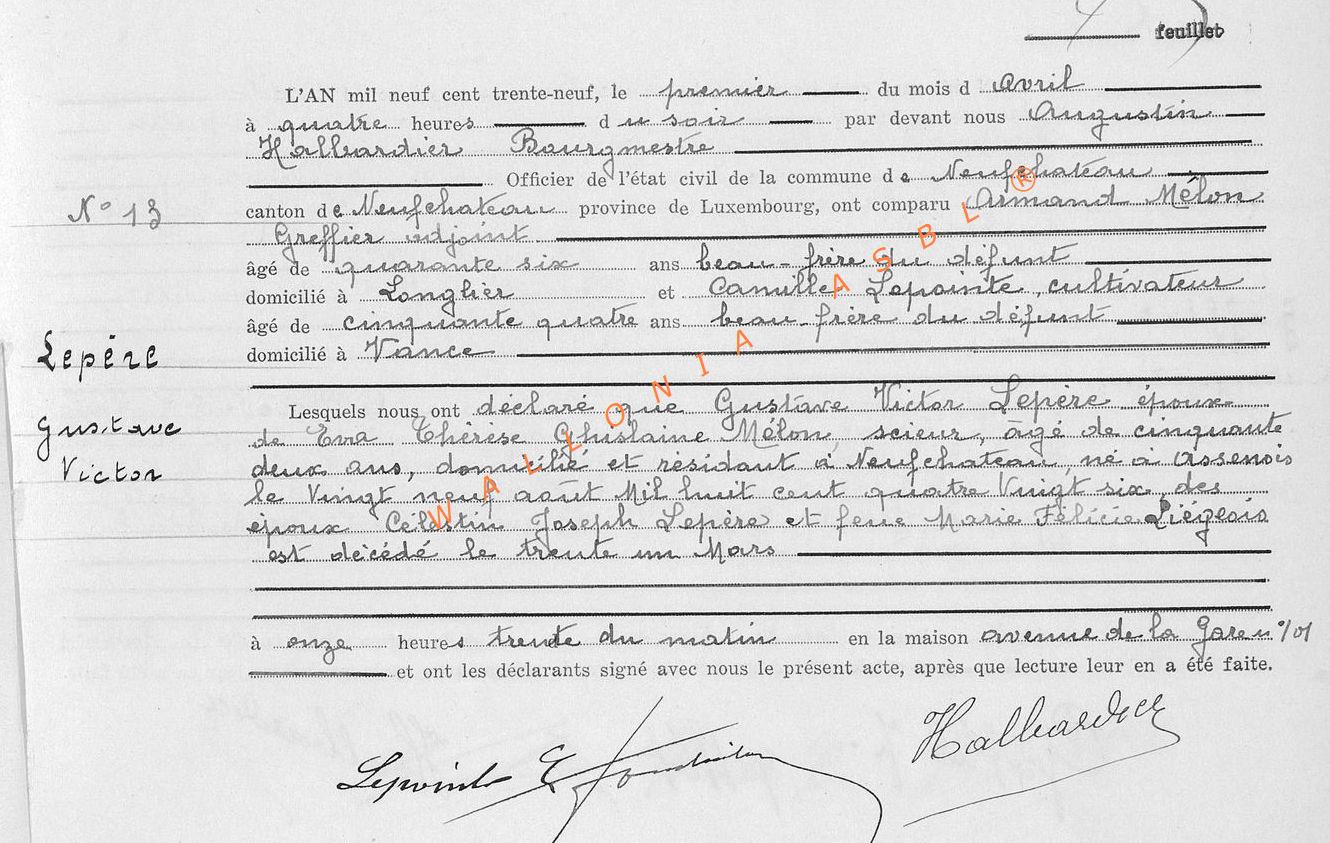 feuillet
L'AN mil neuf cent trente-neuf, le premier du mois d avril
à quatre heures du soir par devant nous Augustin
Halbardier Bourgmestre
Officier de l'état civil de la commune de Neufchateau
N° 13
canton de Neufchateau province de Luxembourg, ont comparu Armand Mêlon
Greffier adjoint
âgé de quarante six ans beau-frère du défunt
domicilié à Longlier et Camille Lepointe, cultivateur
âgé de cinquante quatre ans beau-frère du défunt
domicilié à Vance
Lepère
Gustave
Victor
Lesquels nous ont déclaré que Gustave Victor Lepère époux
de Eva Thérèse Ghislaine Mélon, scieur, âgé de cinquante
deux ans, domicilié et résidant à Neufchateau, né à Assenois
le Vingt neuf août Mil huit cent quatre Vingt six, des
époux Célestin Joseph Lepère et feue Marie Félicie Liégeois
est décédé le trente un Mars
à onze heures trente du matin en la maison avenue de la Gare n°
et ont les déclarants signé avec nous le présent acte, après que lecture leur en a été faite.
Halbardier
WALLONIA ASBL ®